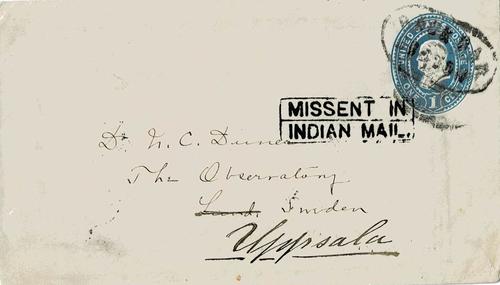 UNITED STATES POSTAGE
ONE CENT
1
MISSENT IN
INDIAN MAIL.
Dr N. C. Duner
The Observatory
Lund. Sweden
Uppsala